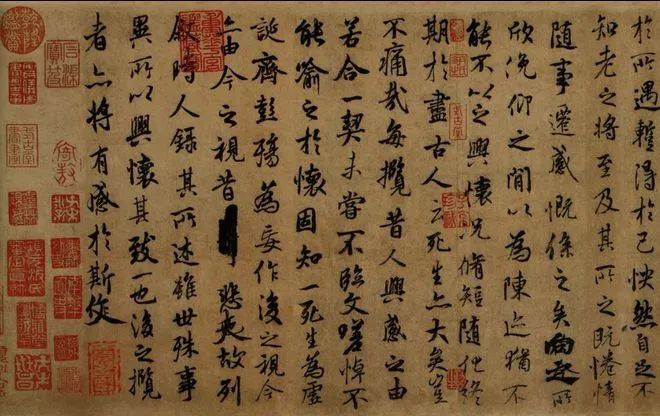 於所遇暫得於己怏然自足不
知老之將至及其所之既惓情
隨事遷感慨係之矣向之所
欣俛仰之閒以為陳迹猶不
能不以之興懷況脩短隨化終
期於盡古人云死生亦大矣豈
不痛哉每攬昔人興感之由
若合一契未嘗不臨文嗟悼不
能喻之於懷固知一死生為虛
誕齊彭殤為妄作後之視今
亦由今之視昔悲夫故列
敘時人錄其所述雖世殊事
異所以興懷其致一也後之攬
者亦將有感於斯文